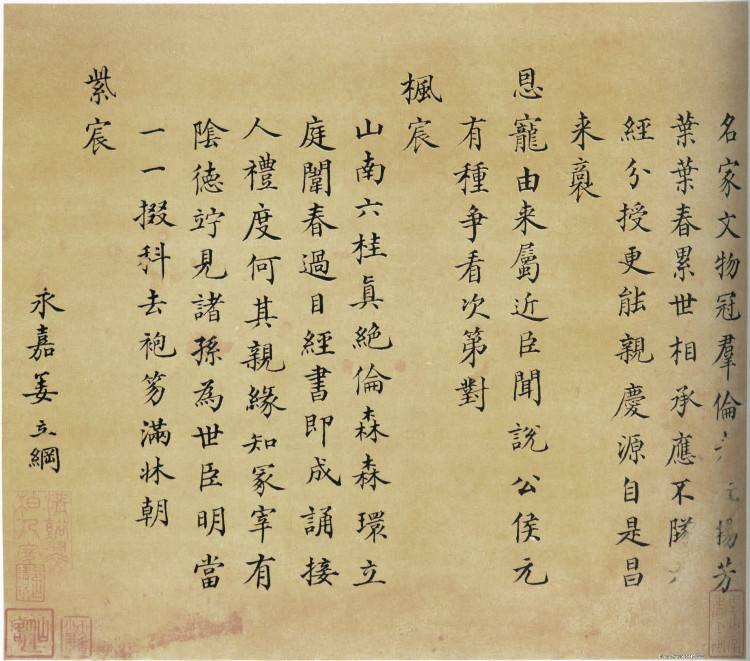 名家文物冠羣倫 揚芳
葉葉春累世相承應不隊
經分授更能親慶源自是昌
来裔
恩寵由来屬近臣聞說公侯元
有種争看次第對
楓宸
山南六桂真絶倫森森環立
庭闈春過目經書即成誦接
人禮度何其親緣知冢宰有
陰德竚見諸孫為世臣明當
一一掇科去袍笏滿牀朝
紫宸
永嘉姜立綱